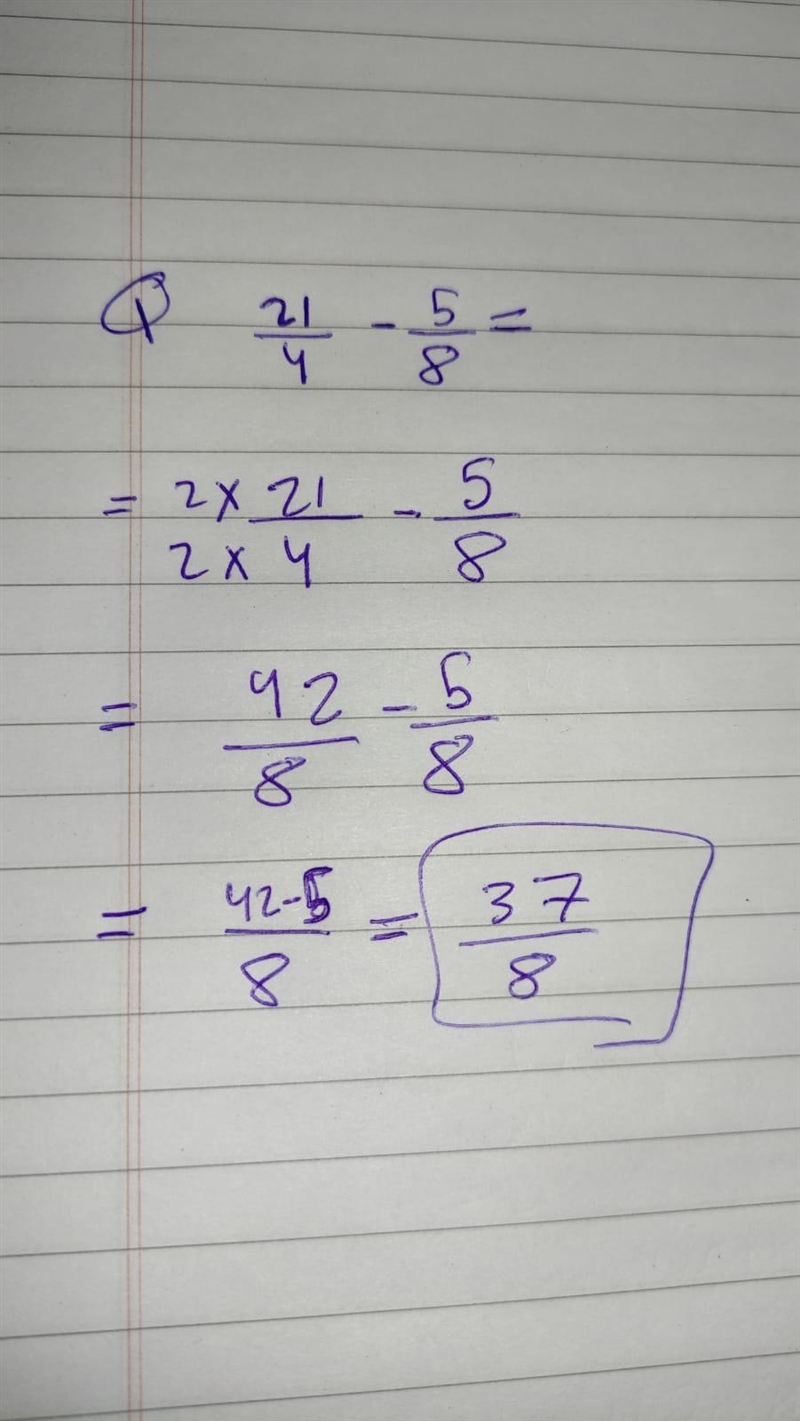 Q 21/4 - 5/8 =
= 2x21/2x4 - 5/8
= 42/8 - 5/8
= 42-5/8 = 37/8